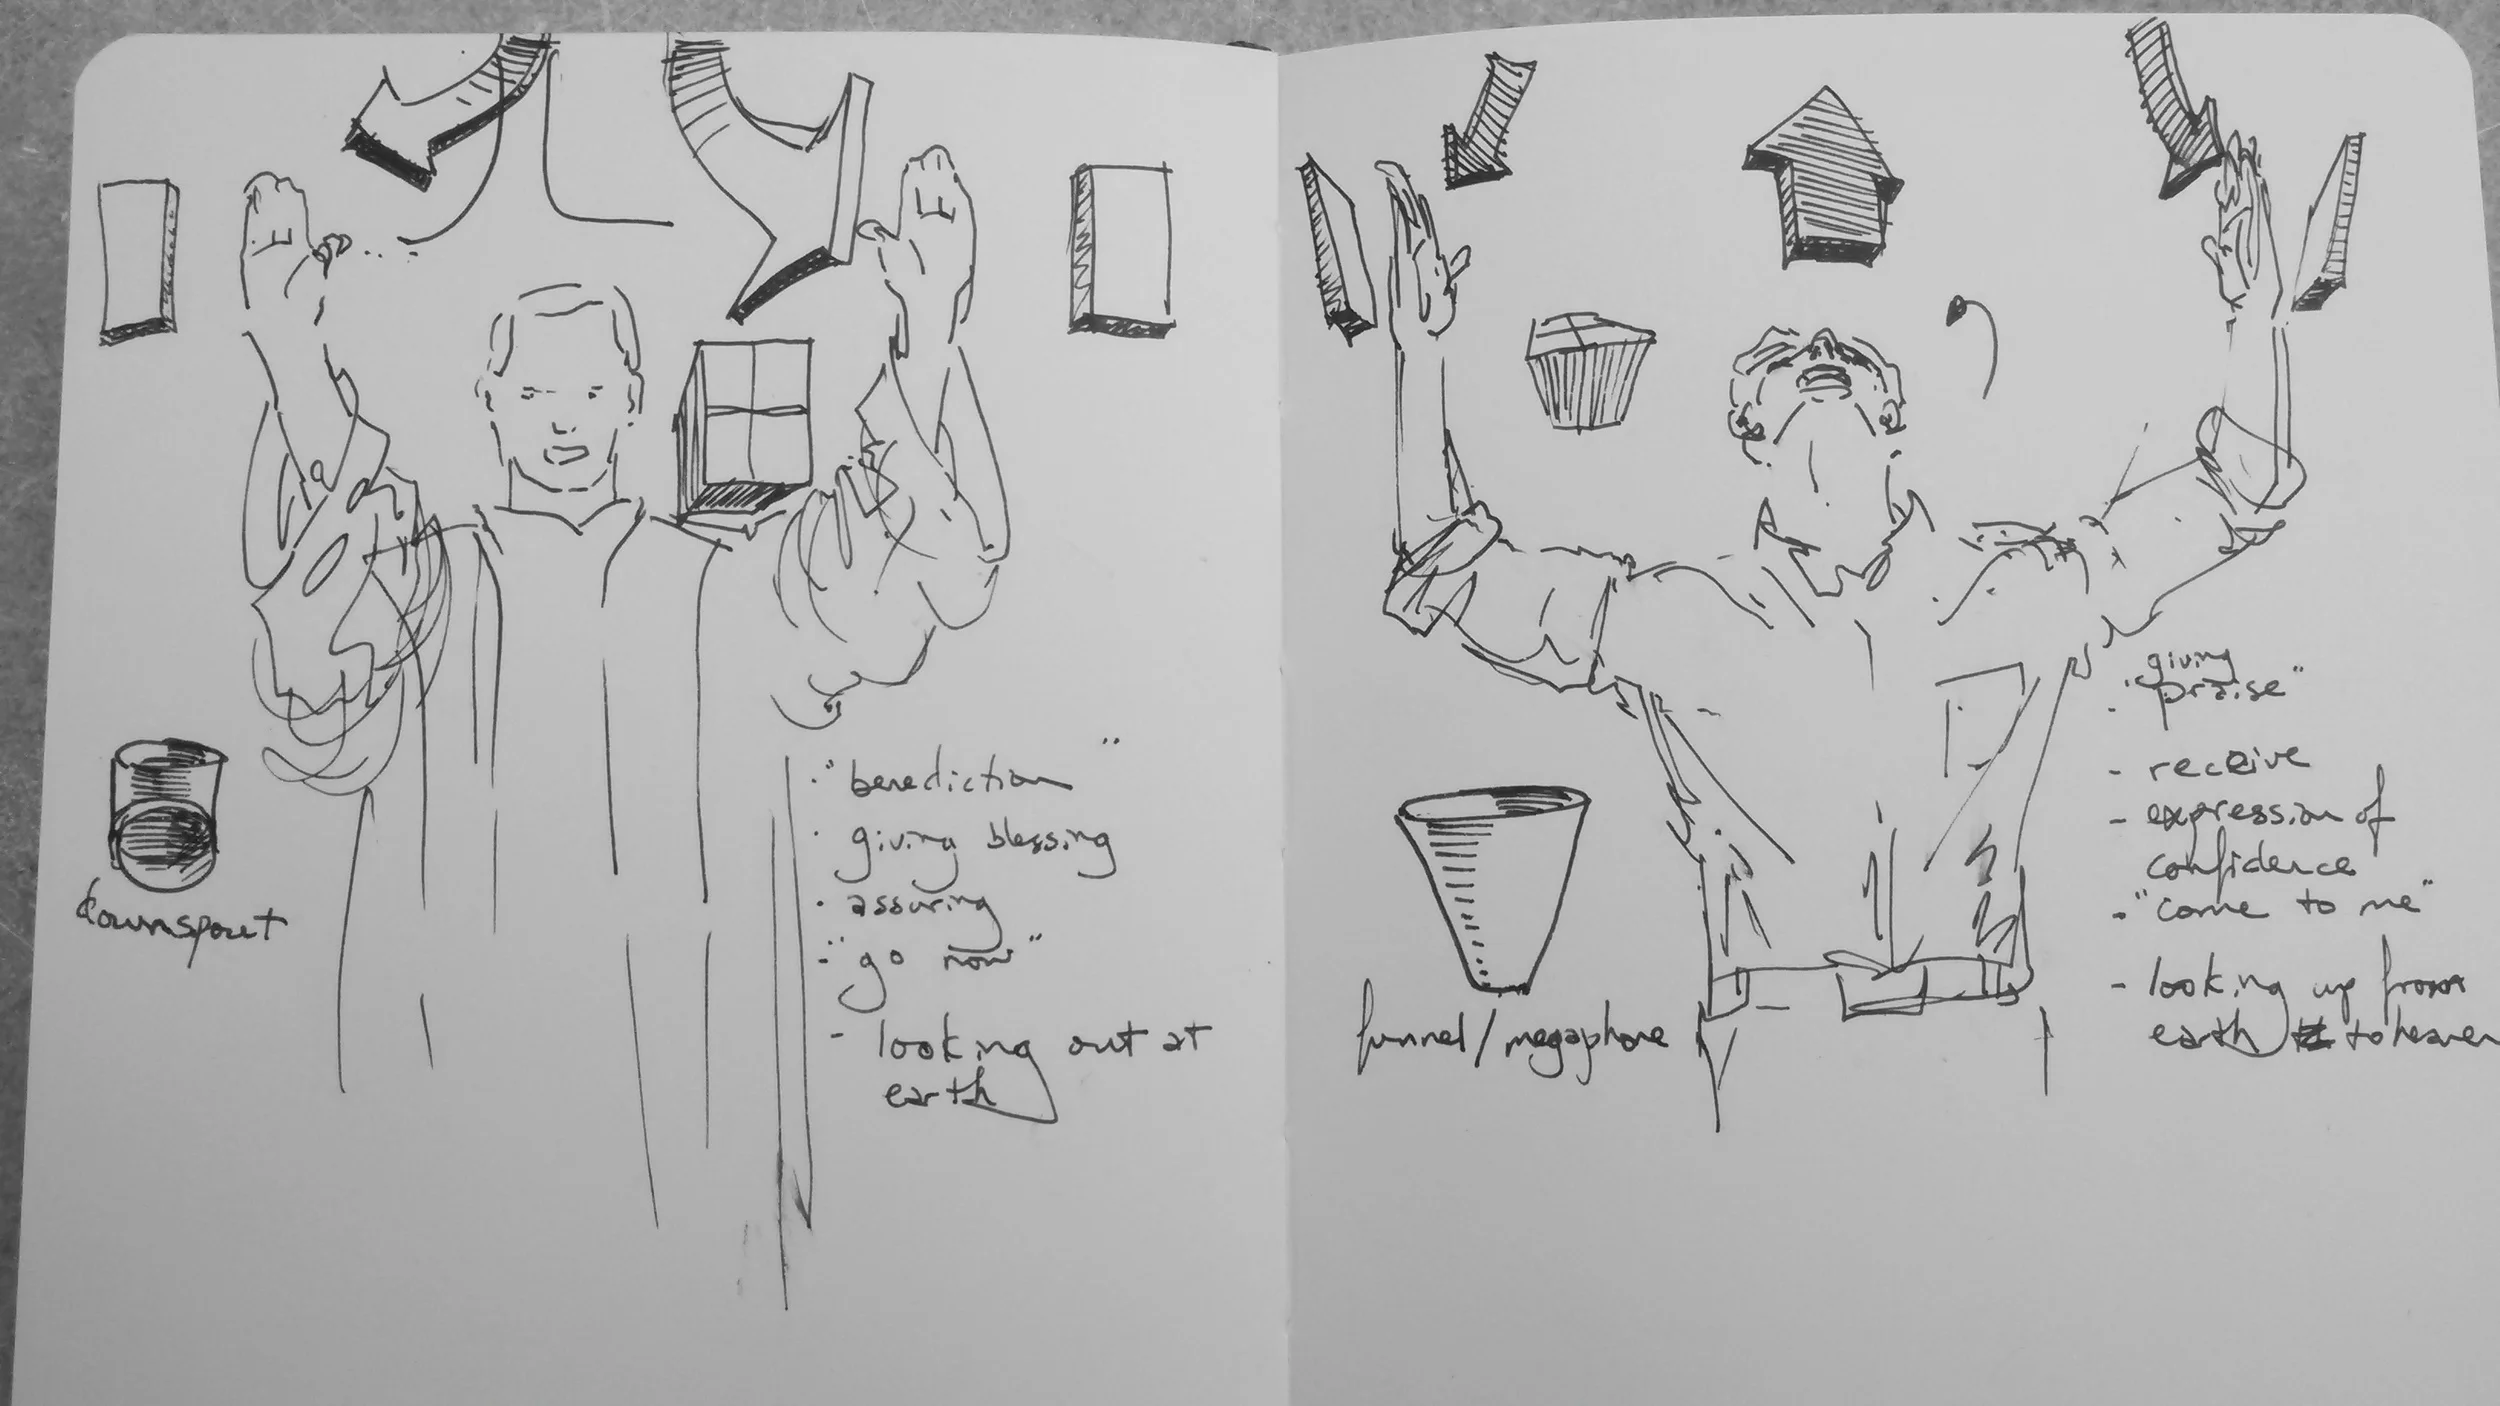 downspout
· "benediction"
· giving blessing
· assuring
- "go now"
- looking out at
earth
funnel/megaphone
giving
- "praise"
- receive
- expression of
confidence
- "come to me"
- looking up from
earth to heaven